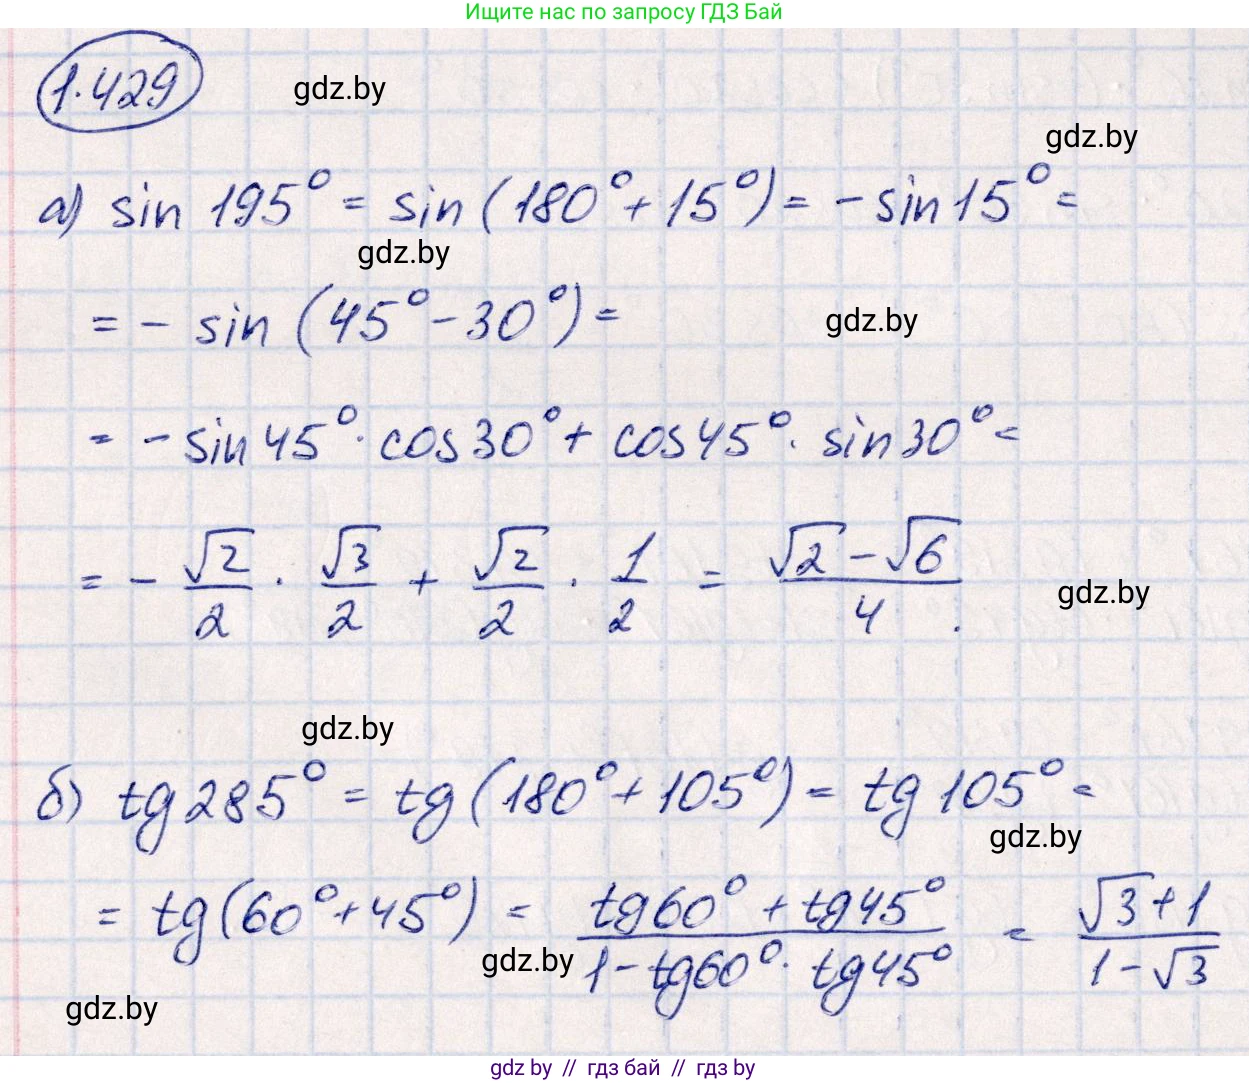 Ищите нас по запросу ГДЗ Бай
1.429
gdz.by
gdz.by
а) sin 195° = sin (180° + 15°) = - sin 15° =
gdz.by
= - sin (45° - 30°) =
gdz.by
= - sin 45° · cos 30° + cos 45° · sin 30° =
= - √2/2 · √3/2 + √2/2 · 1/2 = (√2 - √6)/4.
gdz.by
gdz.by
б) tg 285° = tg (180° + 105°) = tg 105° =
gdz.by
= tg (60° + 45°) = (tg 60° + tg 45°)/(1 - tg 60° · tg 45°) = (√3 + 1)/(1 - √3)
gdz.by
gdz.by
gdz.by // гдз бай // гдз.by